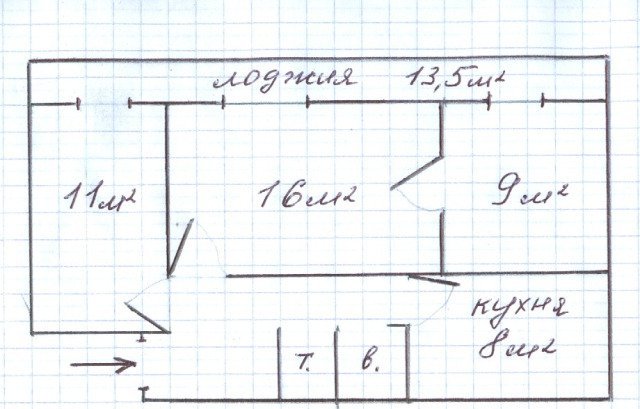 лоджия 13,5м²
11м² 16м² 9м²
кухня
8м²
т. в.